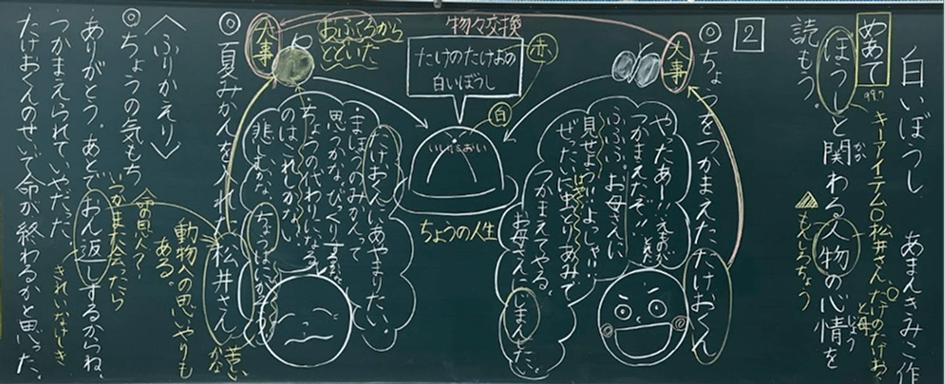 白いぼうし　あまんきみこ作
めあて
ぼうしと関わる人物の心情を
読もう。
キーアイテム
松井さん
たけのたけお
と母
もんしろちょう
2
◎ちょうをつかまえたたけおくん
大事
やったあー!!
つかまえたぞ!!
ふふふ。お母さんに
見せよう。よっしゃー!!
ぜったいに虫とりあみで
つかまえてやる。
お母さんにじまんだ。
物々交換
赤
たけのたけおの
白いぼうし
白
ちょうの人生
大事
おふくろから
とどいた
◎夏みかんを入れた松井さん
たけおくんにあやまりたい。
まほうのみかんって
思うかな。びっくりするかな。
ちょうの代わりになる
のはこれしかない
悲しむな
動物への思いやりも
ある。
〈ふりかえり〉
◎ちょうの気もち
ありがとう。あとでおん返しするからね。
つかまえられていやだった。
たけおくんのせいで命が終わるかと思った。
命の恩人
いつかまた会ったら